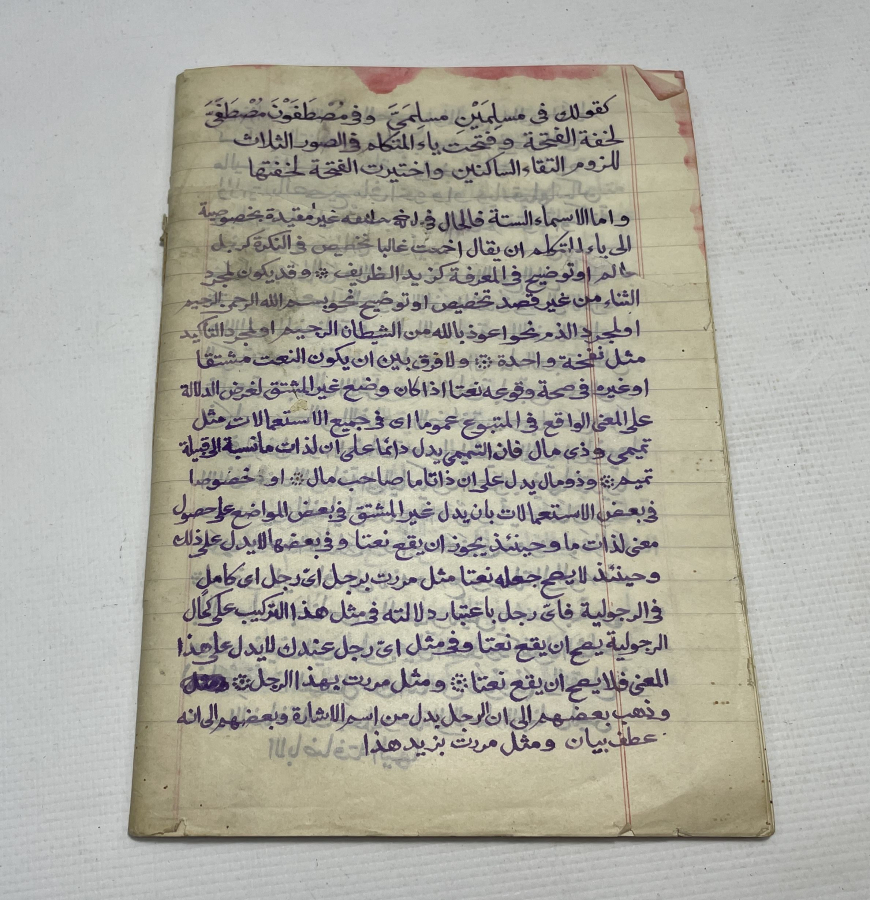 كقولك في مسلِمَيْنِ مسلِمَيَّ وفي مُصْطَفَوْنَ مُصْطَفَيَّ
لخفة الفتحة وفتحت ياء المتكلم في الصور الثلاث
للزوم التقاء الساكنين واختيرت الفتحة لخفتها
واما الاسماء الستة فالحال في غير مقيدة بخصوصية
الى ياء المتكلم ان يقال اخى غالبا تخصيص في النكرة كرجل
عالم او توضيح في المعرفة كزيد الظريف ❊ وقد يكون لمجرد
الثناء من غير قصد تخصيص او توضيح نحو بسم الله الرحمن الرحيم
او لمجرد الذم نحو اعوذ بالله من الشيطان الرجيم او لمجرد التأكيد
مثل نفخة واحدة ❊ ولا فرق بين ان يكون النعت مشتقا
او غيره في صحة وقوعه نعتا اذا كان وضع غير المشتق لغرض الدلالة
على المعنى الواقع في المتبوع عموما اى في جميع الاستعمالات مثل
تميمي وذى مال فان التميمي يدل دائما على ان لذات ما نسبة الى قبيلة
تميم ❊ وذو مال يدل على ان ذاتا ما صاحب مال ❊ او خصوصا
في بعض الاستعمالات بان يدل غير المشتق في بعض المواضع على حصول
معنى لذات ما وحينئذ يجوز ان يقع نعتا وفي بعضها لا يدل على ذلك
وحينئذ لا يصح جعله نعتا مثل مررت برجل اىّ رجل اى كامل
في الرجولية فاىّ رجل باعتبار دلالته في مثل هذا التركيب على كمال
الرجولية يصح ان يقع نعتا وفي مثل اىّ رجل عندك لا يدل على هذا
المعنى فلا يصح ان يقع نعتا ❊ ومثل مررت بهذا الرجل ❊
وذهب بعضهم الى ان الرجل بدل من اسم الاشارة وبعضهم الى انه
عطف بيان ومثل مررت بزيد هذا